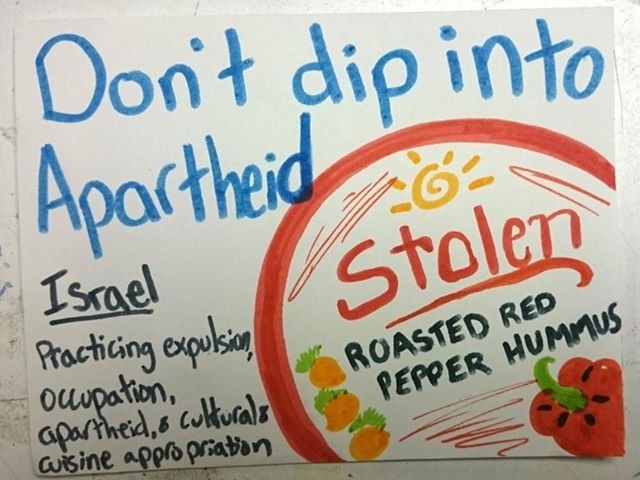 Don't dip into
Apartheid
Israel
Practicing expulsion,
occupation,
apartheid, & cultural &
cuisine appropriation
Stolen
ROASTED RED
PEPPER HUMMUS